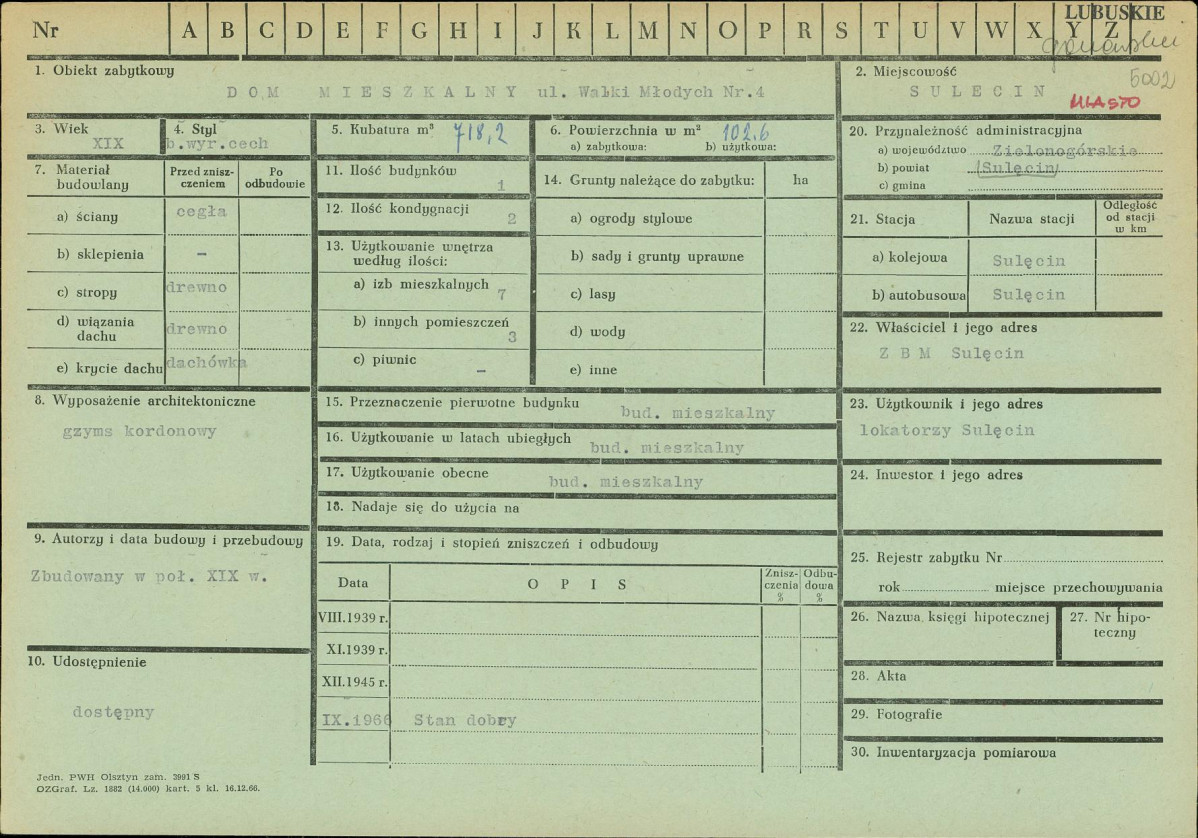 Nr A B C D E F G H I J K L M N O P R S T U V W X Y Z
LUBUSKIE
5002
1. Obiekt zabytkowy
DOM MIESZKALNY ul. Walki Młodych Nr.4
2. Miejscowość
SULECIN
MIASTO
3. Wiek
XIX
4. Styl
b.wyr.cech
5. Kubatura m³ 718,2
6. Powierzchnia w m² 102,6
a) zabytkowa: b) użytkowa:
7. Materiał budowlany
Przed znisz-
czeniem
Po
odbudowie
a) ściany cegła
b) sklepienia –
c) stropy drewno
d) wiązania
dachu drewno
e) krycie dachu dachówka
8. Wyposażenie architektoniczne
gzyms kordonowy
9. Autorzy i data budowy i przebudowy
Zbudowany w poł. XIX w.
10. Udostępnienie
dostępny
11. Ilość budynków
1
12. Ilość kondygnacji
2
13. Użytkowanie wnętrza
według ilości:
a) izb mieszkalnych 7
b) innych pomieszczeń
3
c) piwnic –
14. Grunty należące do zabytku: ha
a) ogrody stylowe
b) sady i grunty uprawne
c) lasy
d) wody
e) inne
15. Przeznaczenie pierwotne budynku bud. mieszkalny
16. Użytkowanie w latach ubiegłych bud. mieszkalny
17. Użytkowanie obecne bud. mieszkalny
18. Nadaje się do użycia na
19. Data, rodzaj i stopień zniszczeń i odbudowy
Data OPIS
Znisz-
czenia
%
Odbu-
dowa
%
VIII.1939 r.
XI.1939 r.
XII.1945 r.
IX.1966 Stan dobry
20. Przynależność administracyjna
a) województwo Zielonogórskie
b) powiat (Sulęcin)
c) gmina
21. Stacja Nazwa stacji
Odległość
od stacji
w km
a) kolejowa Sulęcin
b) autobusowa Sulęcin
22. Właściciel i jego adres
Z B M Sulęcin
23. Użytkownik i jego adres
lokatorzy Sulęcin
24. Inwestor i jego adres
25. Rejestr zabytku Nr
rok miejsce przechowywania
26. Nazwa księgi hipotecznej
27. Nr hipo-
teczny
28. Akta
29. Fotografie
30. Inwentaryzacja pomiarowa
Jedn. PWH Olsztyn zam. 3991 S
OZGraf. Lz. 1882 (14.000) kart. 5 kl. 16.12.66.